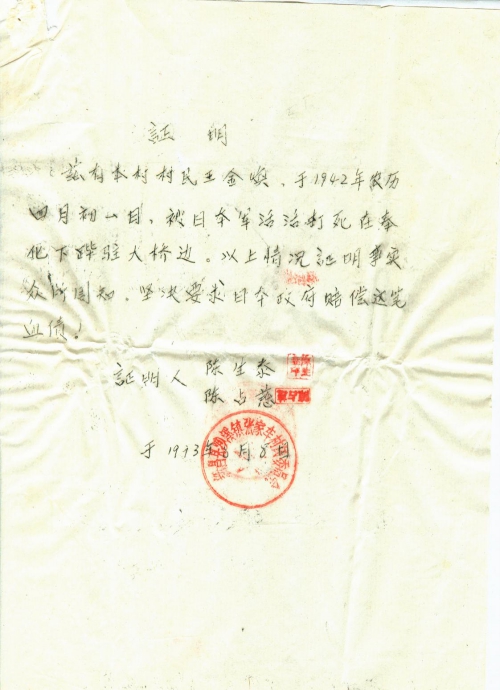 証明
兹有本村村民王金焕、于1942年农历
四月初八日，被日本军活活打死在奉
化下跸驻大桥边。以上情况証明事实
众所周知，坚决要求日本政府赔偿这笔
血债！
証明人 陈生泰
陈占慈
于1993年8月8日
新昌县 镇张家庄村 委员会